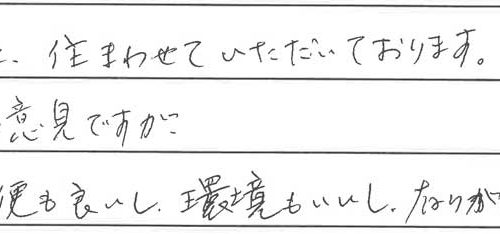 、住まわせていただいております。
意見ですが、
便も良いし、環境もいいし、ありが